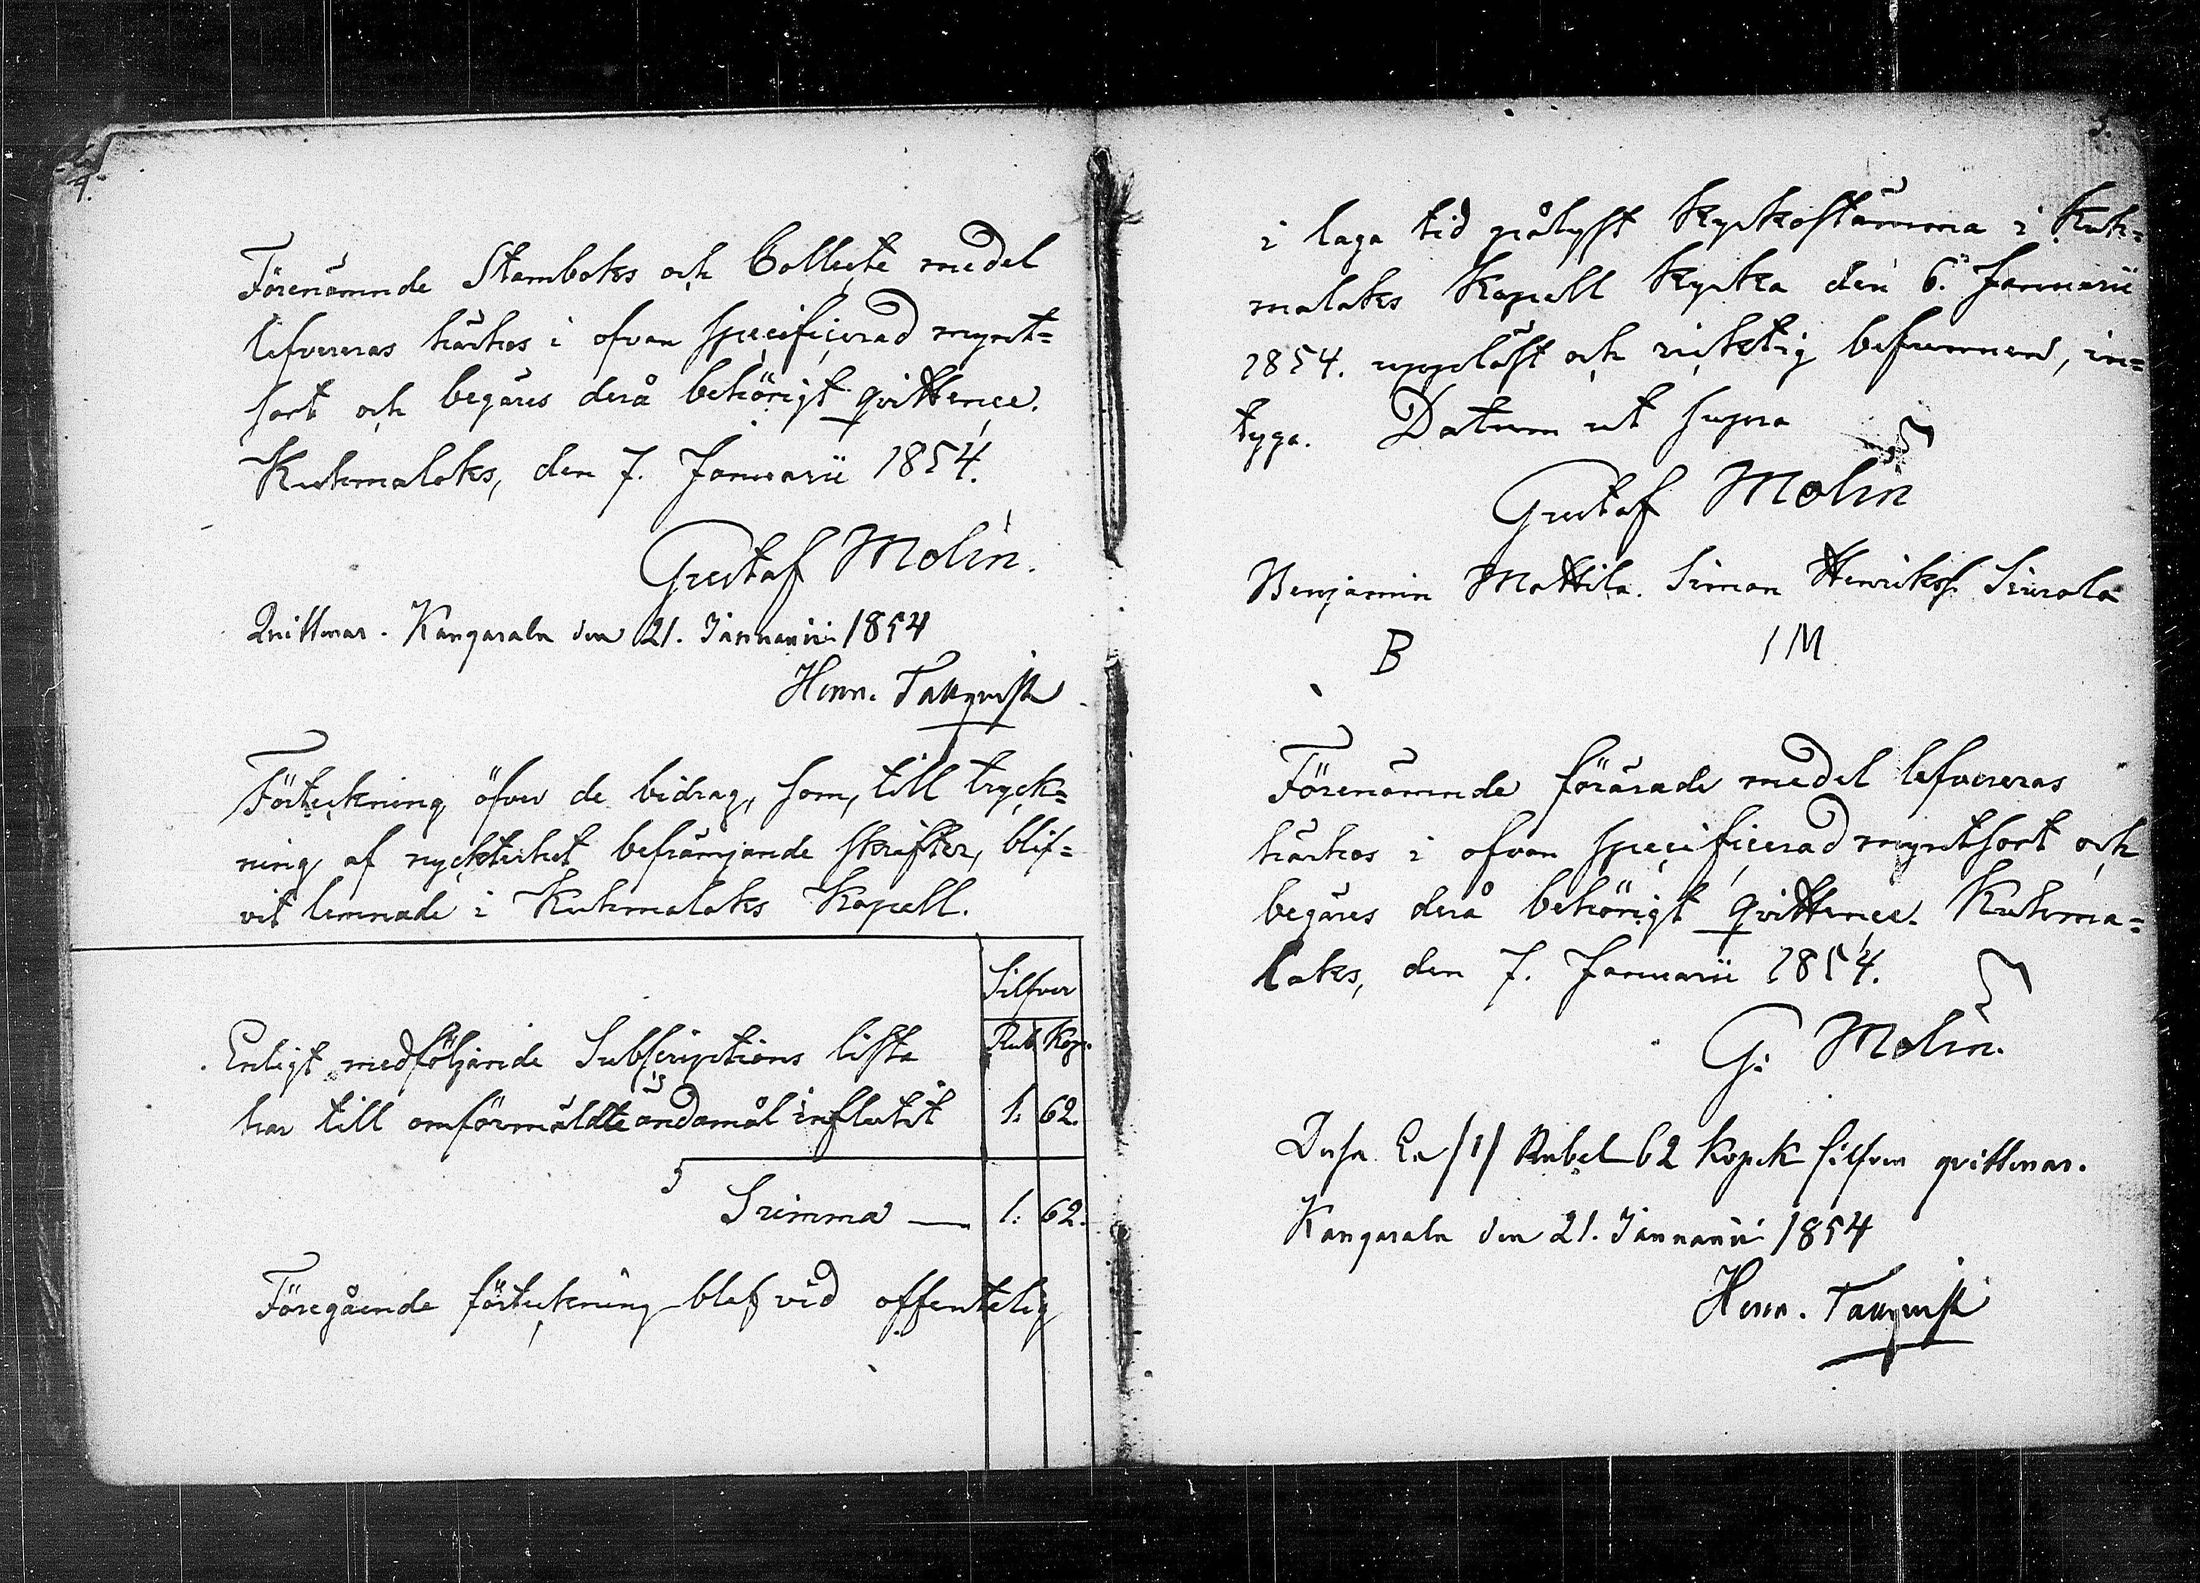 4.
Förenämnde Stamboks och Collecte medel
lefvereras härhos i ofvan specificerad mynt=
sort och begäres derå behörigt qvittence.
Kuhmalaks, den 7. Januarii 1854.
Gustaf Molin.
Quitteras. Kangasala den 21. Januarii 1854
Henr. Tallqvist
Förteckning öfver de bidrag, som, till tryck=
ning af nyckterhet befrämjande skrifter, blif=
vit lemnade i Kuhmalaks Kapell.
Silfver
Rub. Kop.
Enligt medföljande Subscriptions lista
har till omförmäldte ändamål influtit 1: 62.
Summa — 1: 62.
Föregående förteckning blef vid offentelig
5.
i laga tid pålyst Kyrkostämma i Kuh=
malaks Kapell Kyrka den 6. Januarii
1854. uppläst och ricktig befunnen, in=
tyga. Datum ut supra
Gustaf Molin
Benjamin Mattila. Simon Henrikss. Siurola
B IM
Förenämnde förärade medel lefvereras
härhos i ofvan specificerad myntsort och
begäres derå behörigt qvittence. Kuhma=
laks, den 7. Januarii 1854.
G. Molin.
Dessa En /1/ Rubel 62 kopek silfver qvitteras.
Kangasala den 21. Januarii 1854
Henr. Tallqvist